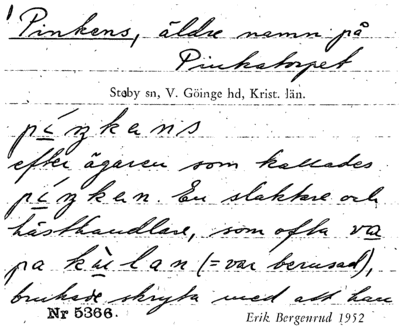 1 Pinkens, äldre namn på
Pinkatorpet
Stoby sn, V. Göinge hd, Krist. län.
píŋkens
efter ägaren som kallades
píŋken. En slaktare och
hästhandlare, som ofta va
pa kùlan (= var berusad),
brukade skryta med att han
Nr 5366.
Erik Bergenrud 1952